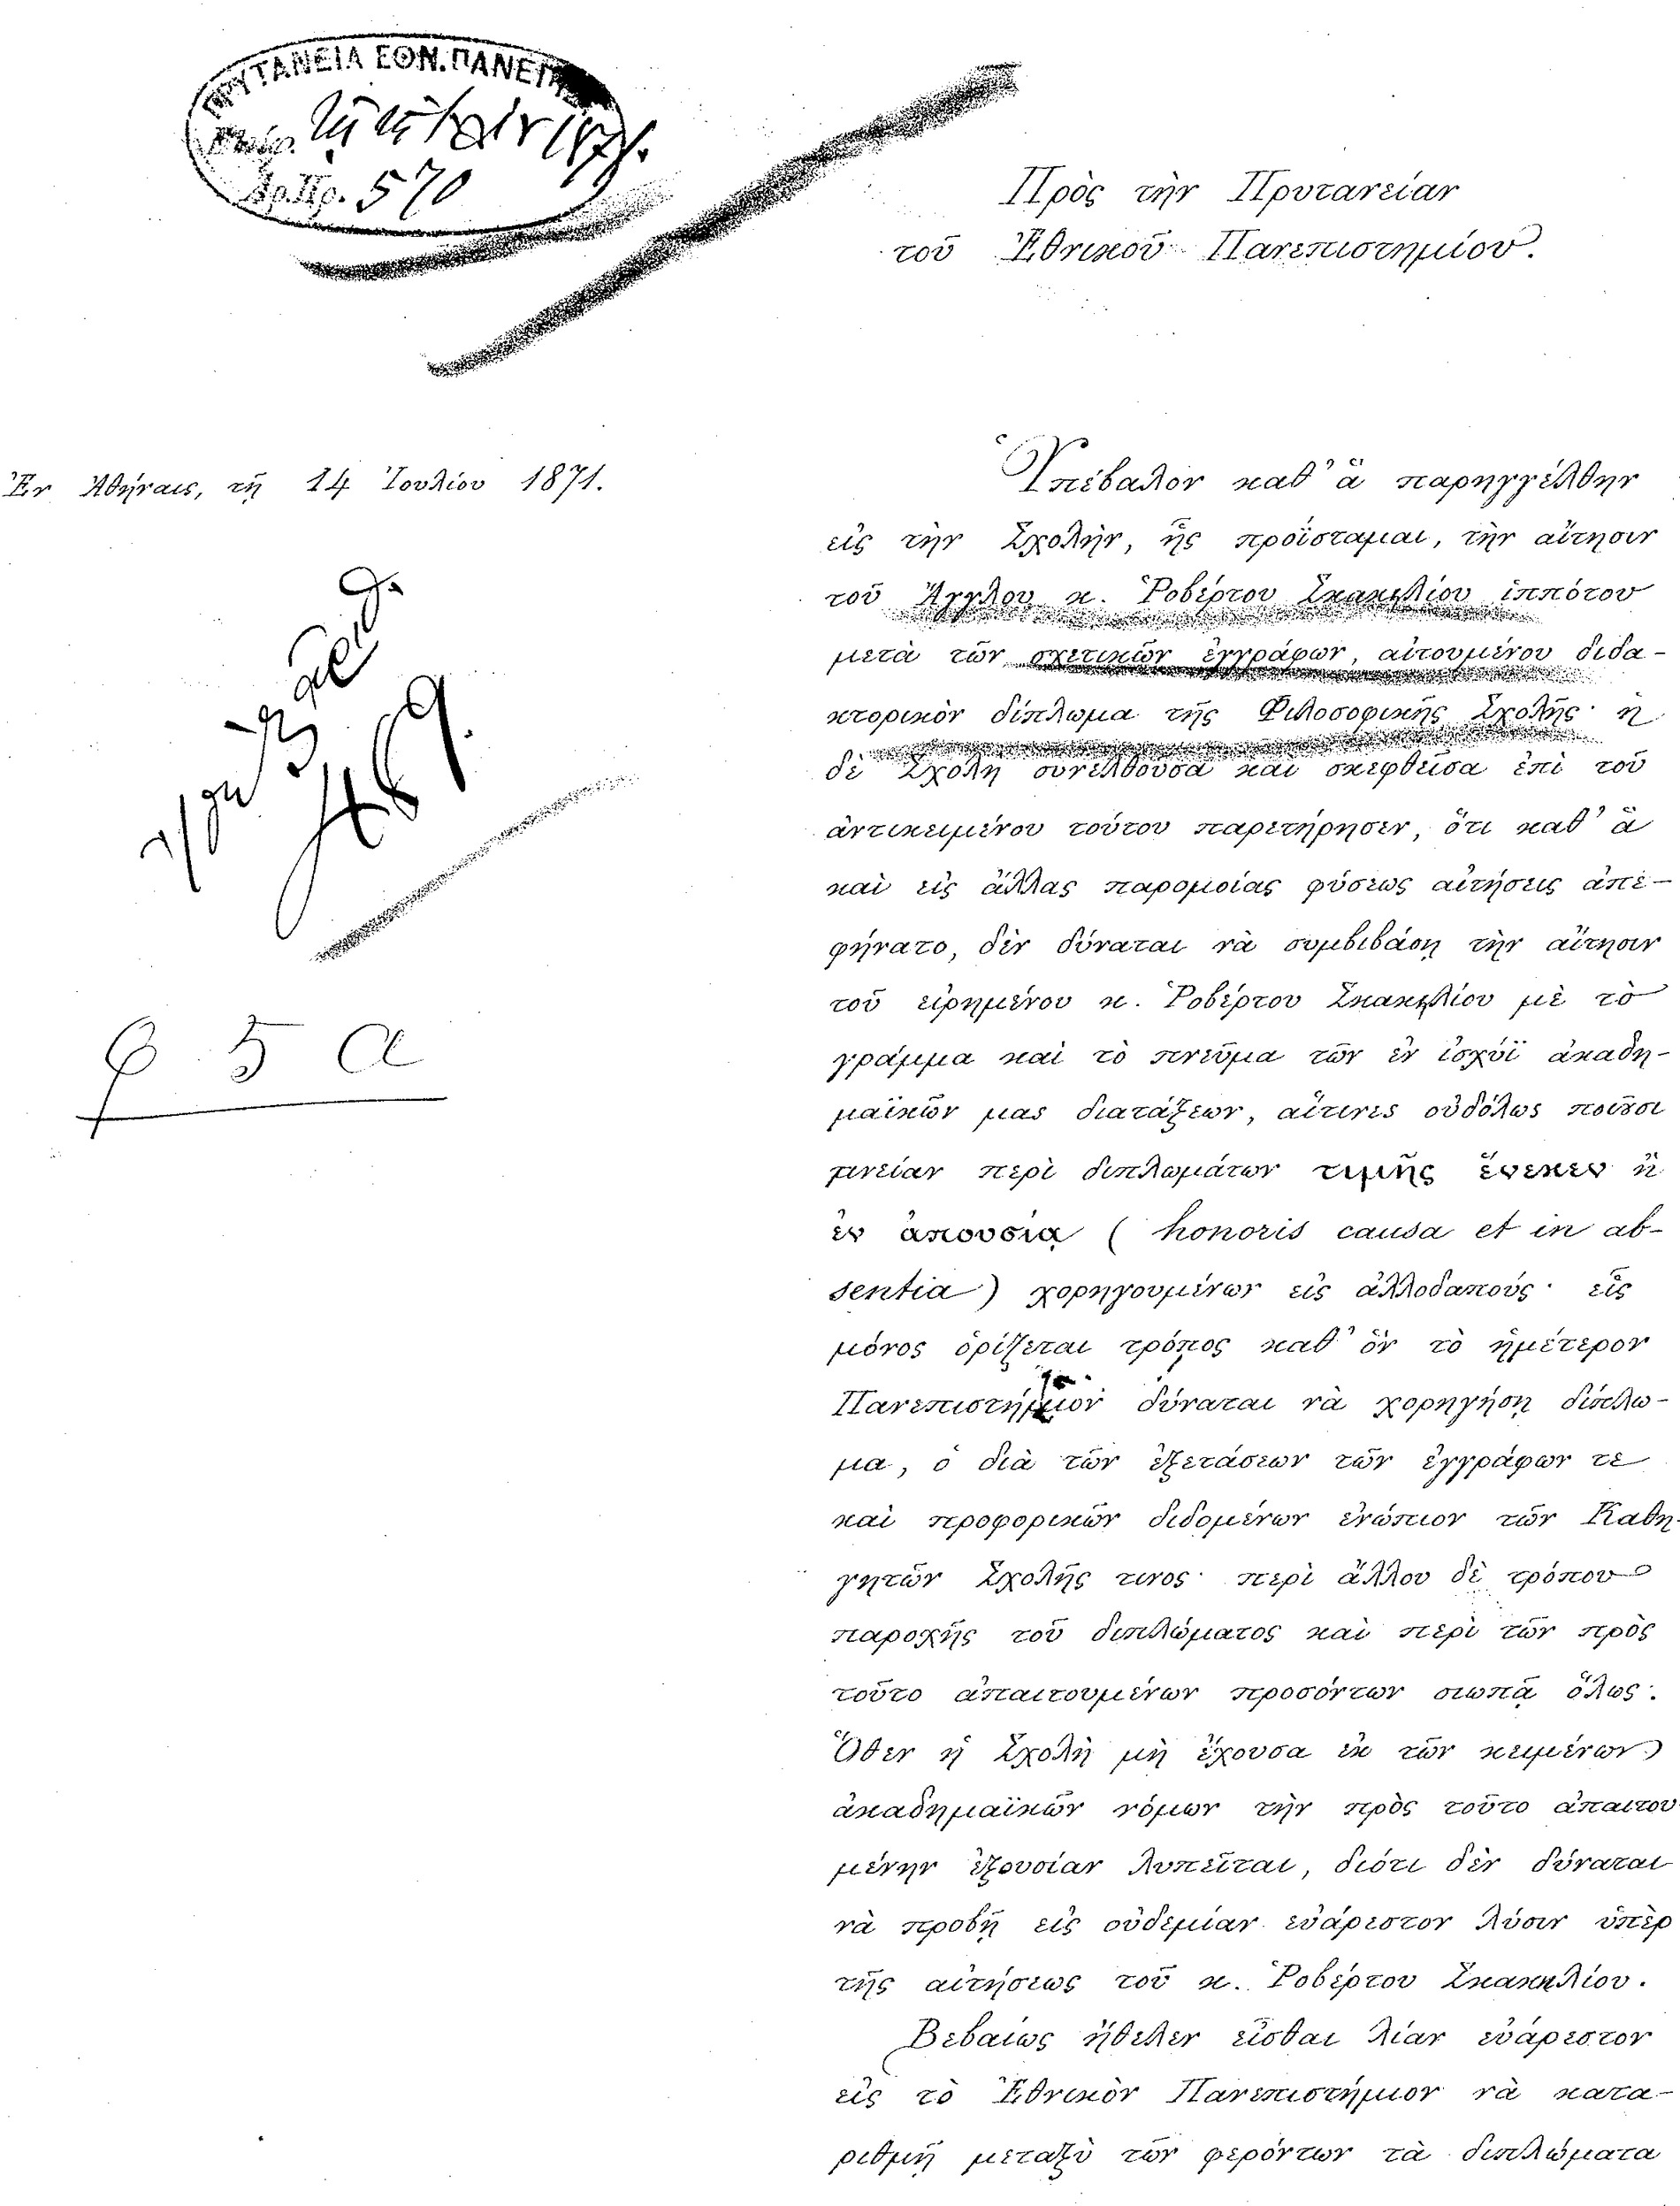 ΠΡΥΤΑΝΕΙΑ ΕΘΝ. ΠΑΝΕΠ
Ἀρ.Πρ. 570
Πρὸς τὴν Πρυτανείαν
τοῦ Ἐθνικοῦ Πανεπιστημίου.
Ἐν Ἀθήναις, τῇ 14 Ἰουλίου 1871.
469.
Ὑπέβαλον καθ' ἃ παρηγγέλθην
εἰς τὴν Σχολὴν, ἧς προΐσταμαι, τὴν αἴτησιν
τοῦ Ἄγγλου κ. Ῥοβέρτου Σκακηλίου ἱππότου
μετὰ τῶν σχετικῶν ἐγγράφων, αἰτουμένου διδα-
κτορικὸν δίπλωμα τῆς Φιλοσοφικῆς Σχολῆς· ἡ
δὲ Σχολὴ συνελθοῦσα καὶ σκεφθεῖσα ἐπὶ τοῦ
ἀντικειμένου τούτου παρετήρησεν, ὅτι καθ' ἃ
καὶ εἰς ἄλλας παρομοίας φύσεως αἰτήσεις ἀπε-
φήνατο, δὲν δύναται νὰ συμβιβάσῃ τὴν αἴτησιν
τοῦ εἰρημένου κ. Ῥοβέρτου Σκακηλίου μὲ τὸ
γράμμα καὶ τὸ πνεῦμα τῶν ἐν ἰσχύϊ ἀκαδη-
μαϊκῶν μας διατάξεων, αἵτινες οὐδόλως ποιοῦσι
μνείαν περὶ διπλωμάτων τιμῆς ἕνεκεν ἢ
ἐν ἀπουσίᾳ (honoris causa et in ab-
sentia) χορηγουμένων εἰς ἀλλοδαπούς· εἷς
μόνος ὁρίζεται τρόπος καθ' ὃν τὸ ἡμέτερον
Πανεπιστήμιον δύναται νὰ χορηγήσῃ δίπλω-
μα, ὁ διὰ τῶν ἐξετάσεων τῶν ἐγγράφων τε
καὶ προφορικῶν διδομένων ἐνώπιον τῶν Καθη-
γητῶν Σχολῆς τινος· περὶ ἄλλου δὲ τρόπου
παροχῆς τοῦ διπλώματος καὶ περὶ τῶν πρὸς
τοῦτο ἀπαιτουμένων προσόντων σιωπᾷ ὅλως.
Ὅθεν ἡ Σχολὴ μὴ ἔχουσα ἐκ τῶν κειμένων
ἀκαδημαϊκῶν νόμων τὴν πρὸς τοῦτο ἀπαιτου
μένην ἐξουσίαν λυπεῖται, διότι δὲν δύναται
νὰ προβῇ εἰς οὐδεμίαν εὐάρεστον λύσιν ὑπὲρ
τῆς αἰτήσεως τοῦ κ. Ῥοβέρτου Σκακηλίου.
Βεβαίως ἤθελεν εἶσθαι λίαν εὐάρεστον
εἰς τὸ Ἐθνικὸν Πανεπιστήμιον νὰ κατα-
ριθμῇ μεταξὺ τῶν φερόντων τὰ διπλώματα